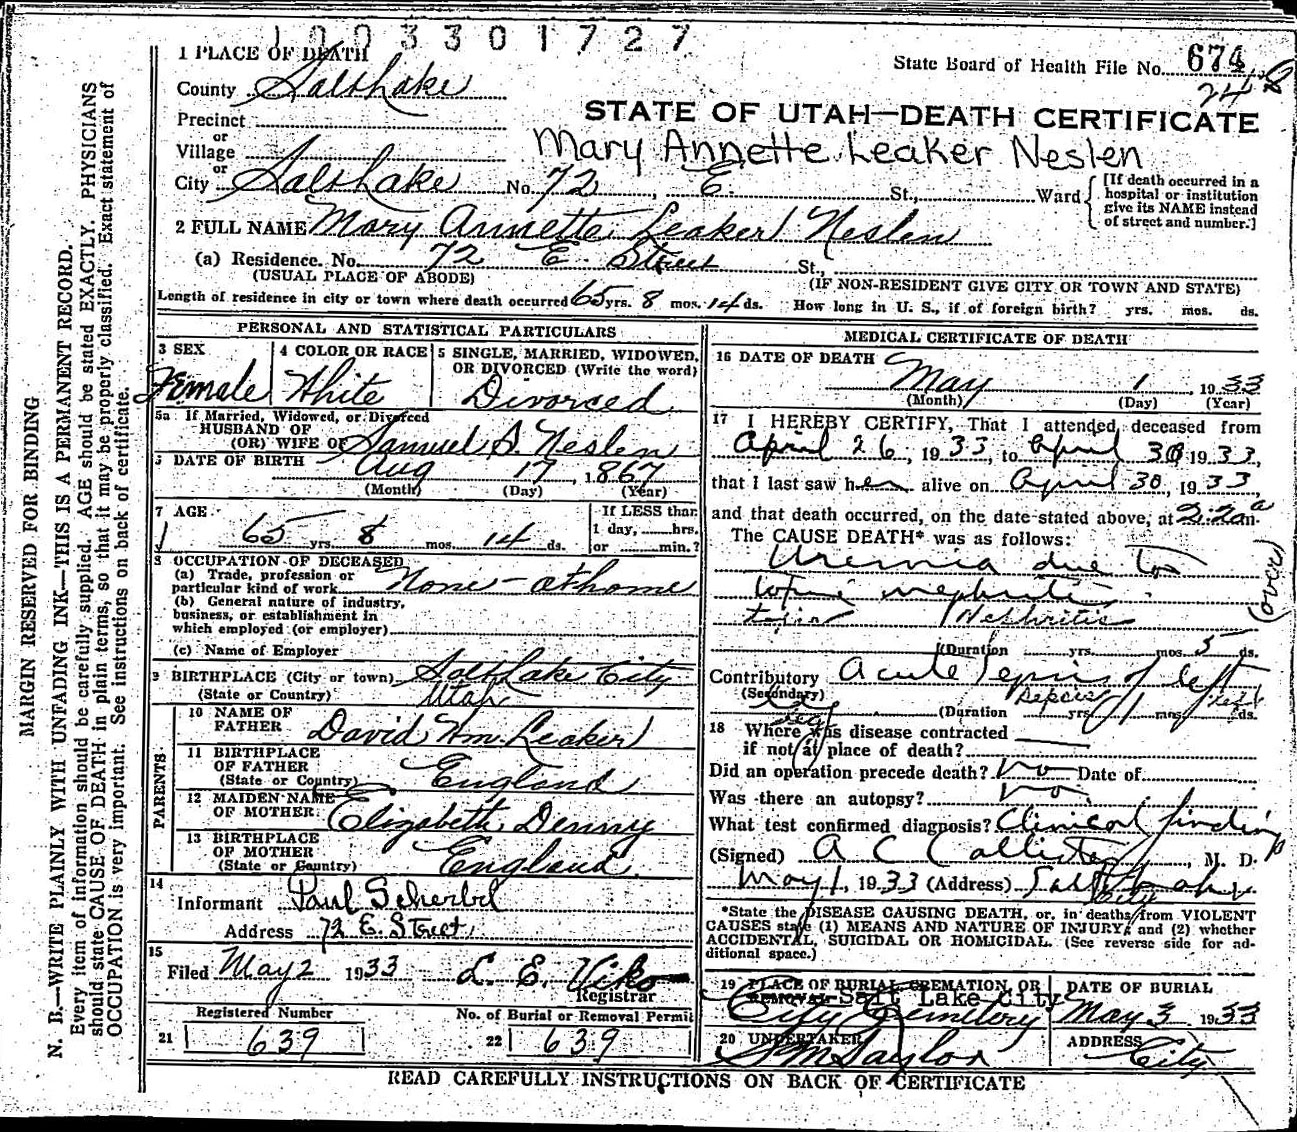 1003301727
1 PLACE OF DEATH
State Board of Health File No. 674
24
County Salt Lake
STATE OF UTAH—DEATH CERTIFICATE
Precinct
or
Mary Annette Leaker Neslen
Village
or
City Salt Lake No. 72, E. St., Ward
[If death occurred in a hospital or institution give its NAME instead of street and number.]
2 FULL NAME Mary Annette Leaker Neslen
(a) Residence. No. 72 E. Street St.,
(USUAL PLACE OF ABODE) (IF NON-RESIDENT GIVE CITY OR TOWN AND STATE)
Length of residence in city or town where death occurred 65 yrs. 8 mos. 14 ds. How long in U. S., if of foreign birth? yrs. mos. ds.
PERSONAL AND STATISTICAL PARTICULARS
3 SEX
Female
4 COLOR OR RACE
White
5 SINGLE, MARRIED, WIDOWED, OR DIVORCED (Write the word)
Divorced
5a If Married, Widowed, or Divorced
HUSBAND OF
(OR) WIFE OF Samuel S. Neslen
6 DATE OF BIRTH
Aug 17, 1867
(Month) (Day) (Year)
7 AGE
65 yrs. 8 mos. 14 ds.
If LESS than
1 day, hrs.
or min.?
8 OCCUPATION OF DECEASED
(a) Trade, profession or
particular kind of work None - at home
(b) General nature of industry,
business, or establishment in
which employed (or employer)
(c) Name of Employer
9 BIRTHPLACE (City or town) Salt Lake City
(State or Country) Utah
PARENTS
10 NAME OF
FATHER David Wm. Leaker
11 BIRTHPLACE
OF FATHER
(State or Country) England
12 MAIDEN NAME
OF MOTHER Elizabeth Denny
13 BIRTHPLACE
OF MOTHER
(State or Country) England.
14
Informant Paul Scherbel
Address 72 E. Street
15
Filed May 2 1933 L. E. Viko
Registrar
Registered Number No. of Burial or Removal Permit
21 639 22 639
MEDICAL CERTIFICATE OF DEATH
16 DATE OF DEATH
May 1, 1933
(Month) (Day) (Year)
17 I HEREBY CERTIFY, That I attended deceased from
April 26, 1933, to April 30 1933,
that I last saw her alive on April 30, 1933,
and that death occurred, on the date stated above, at 2:20 a m.
The CAUSE DEATH* was as follows:
Uremia due to
toxic nephritis
toxic Nephritis
(over)
(Duration yrs. mos. 5 ds.
Contributory Acute sepsis of left
(Secondary) leg
Sepsis left
(Duration yrs. mos. ds.
leg
18 Where was disease contracted
if not at place of death?
Did an operation precede death? no Date of
Was there an autopsy? no
What test confirmed diagnosis? Clinical findings
(Signed) A C Callister, M. D.
May 1, 1933 (Address) Salt Lake
City
*State the DISEASE CAUSING DEATH, or, in deaths from VIOLENT
CAUSES state (1) MEANS AND NATURE OF INJURY; and (2) whether
ACCIDENTAL, SUICIDAL OR HOMICIDAL. (See reverse side for ad-
ditional space.)
19 PLACE OF BURIAL, CREMATION, OR
REMOVAL Salt Lake City
City Cemetery
DATE OF BURIAL
May 3 1933
20 UNDERTAKER
S M Taylor
ADDRESS
City
READ CAREFULLY INSTRUCTIONS ON BACK OF CERTIFICATE
MARGIN RESERVED FOR BINDING
N. B.—WRITE PLAINLY WITH UNFADING INK—THIS IS A PERMANENT RECORD.
Every item of information should be carefully supplied. AGE should be stated EXACTLY. PHYSICIANS
should state CAUSE OF DEATH in plain terms, so that it may be properly classified. Exact statement of
OCCUPATION is very important. See instructions on back of certificate.